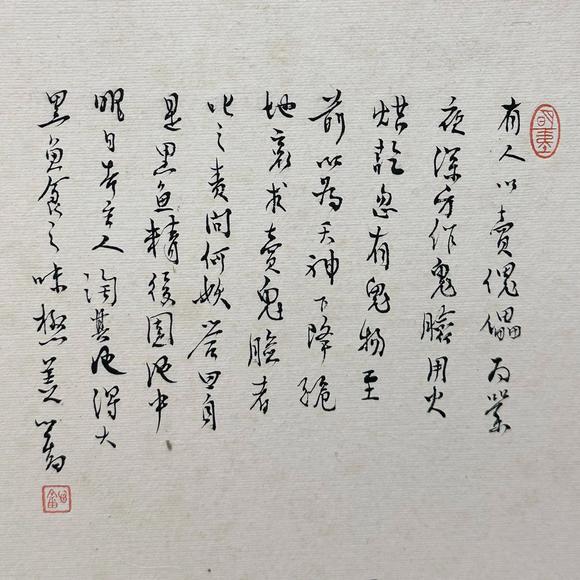 有人以賣傀儡為業
夜深方作鬼臉用火
烘乾忽有鬼物至
前以為天神下降跪
地哀求賣鬼臉者
叱之責問何妖答曰身
是黑魚精後園池中
明日告主人淘其池得大
黑魚食之味極美